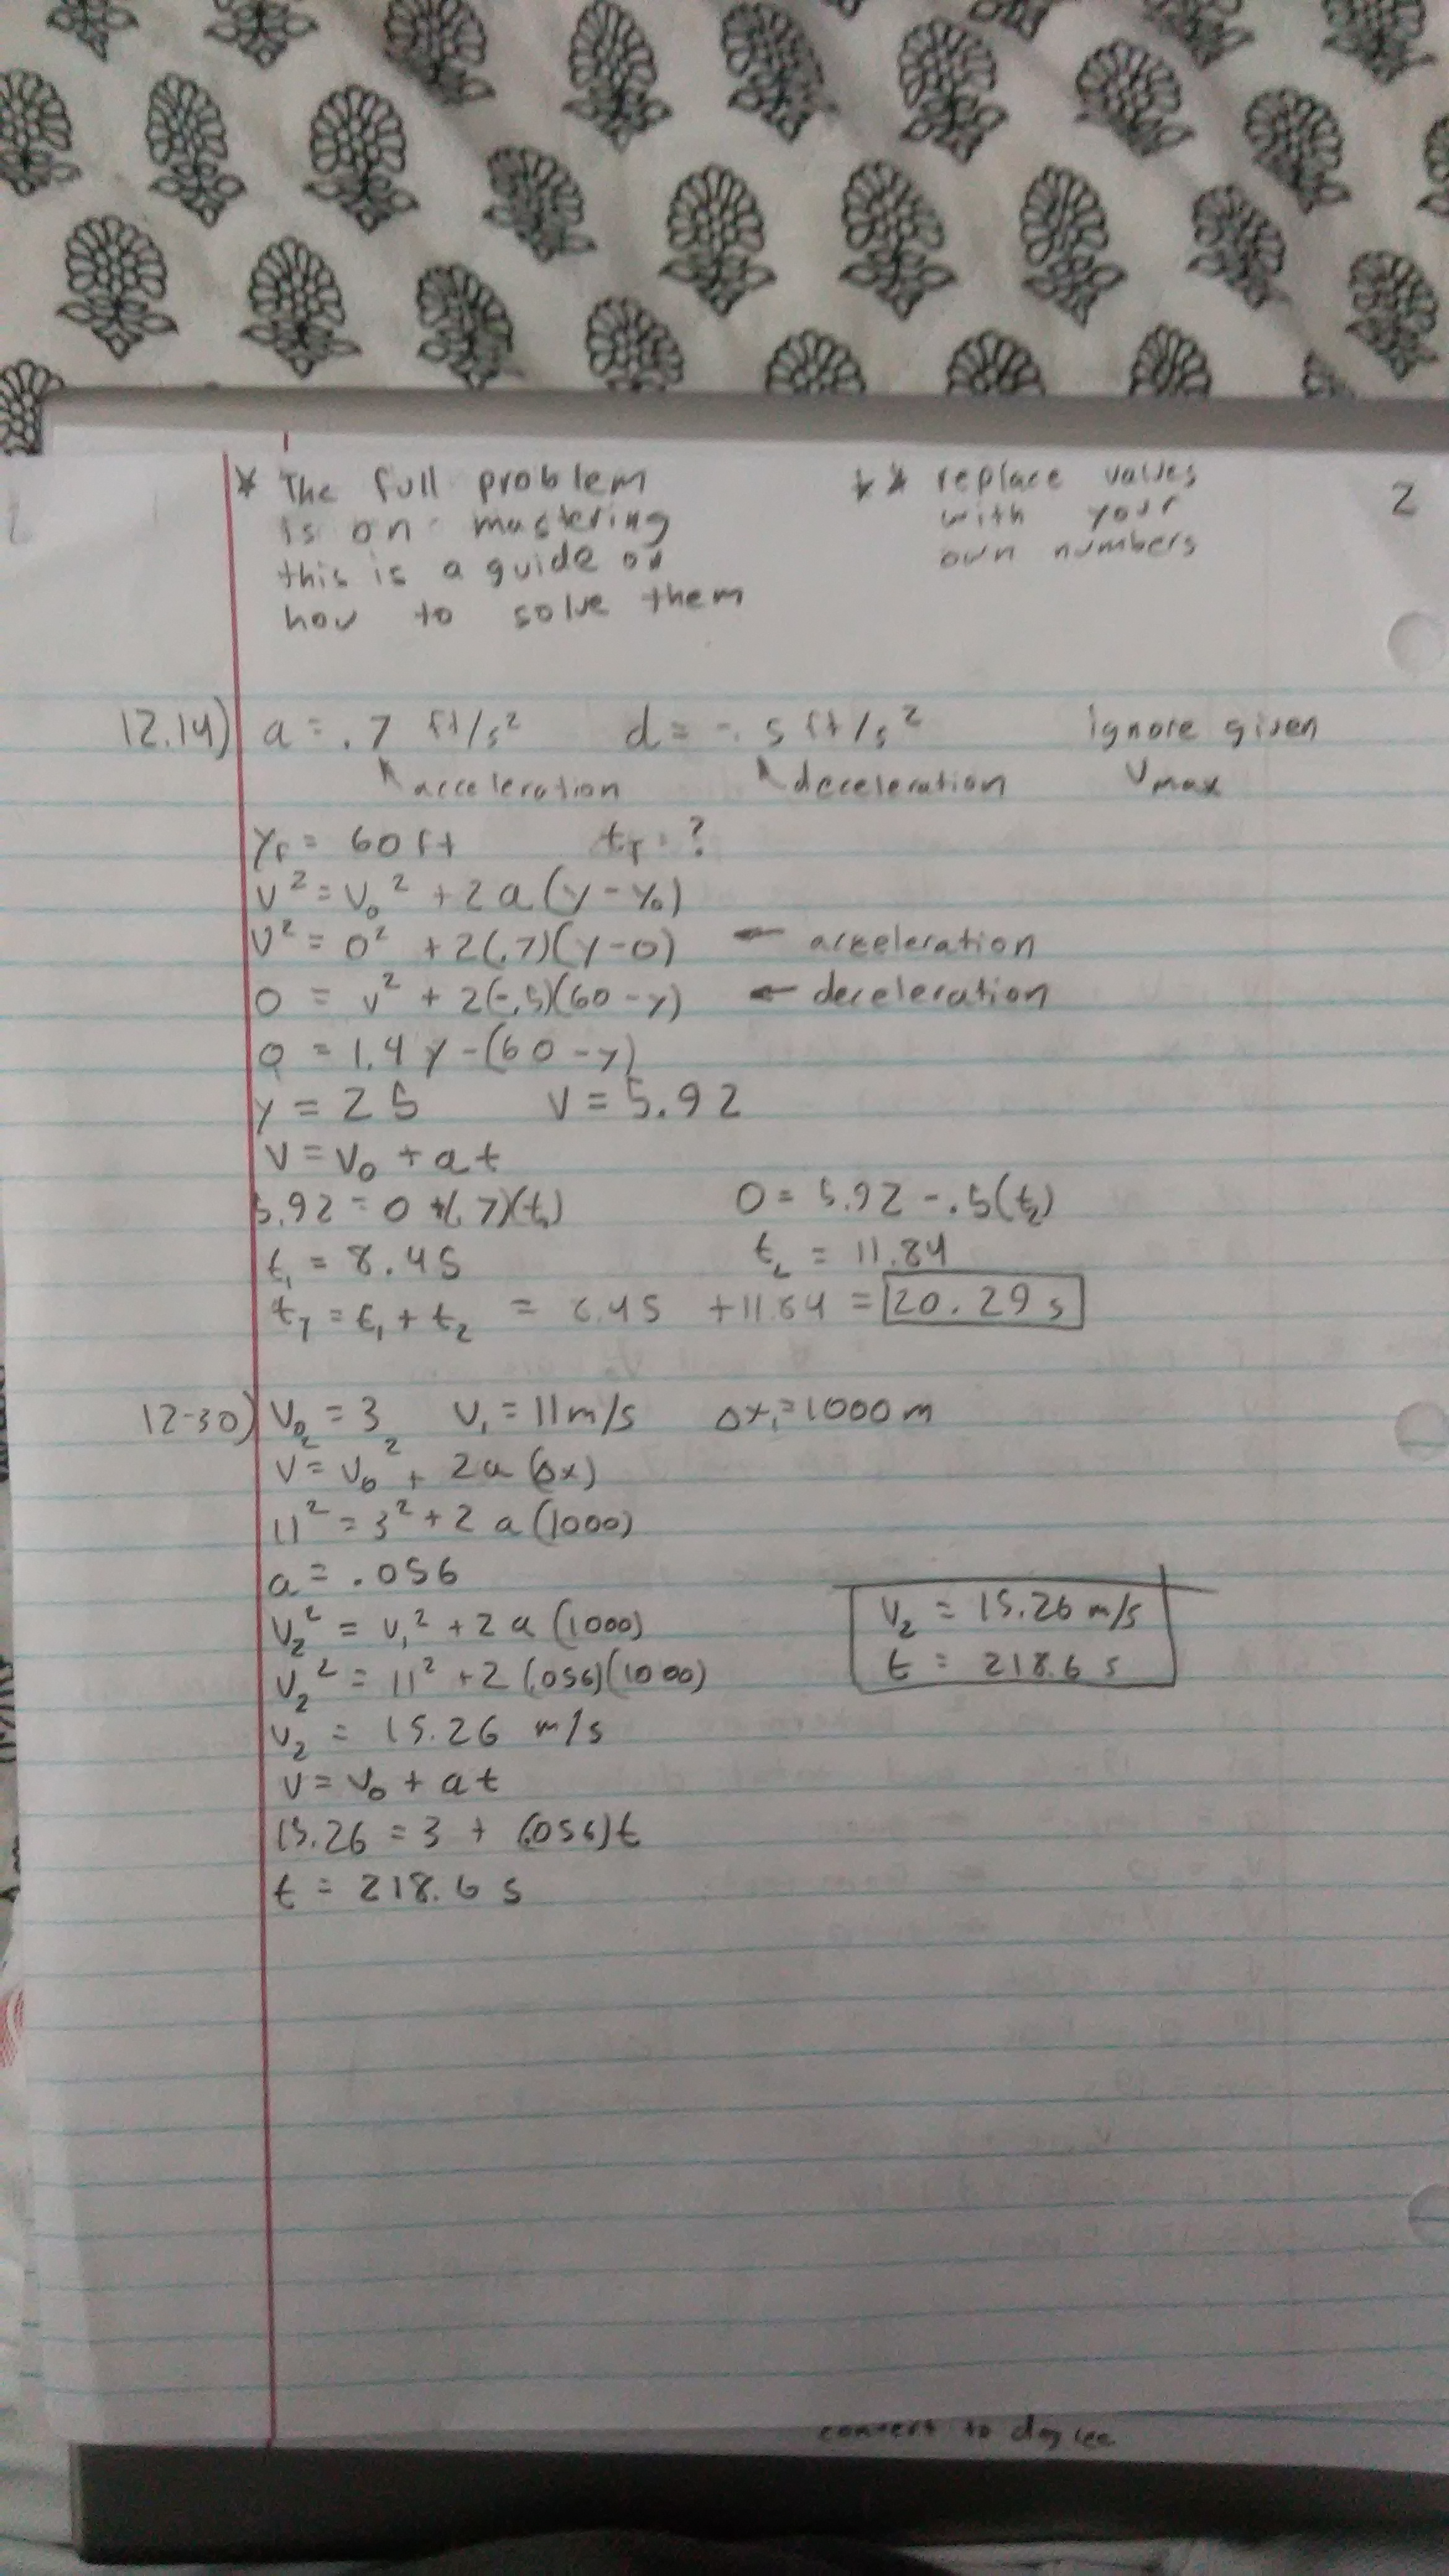 * The full problem
is on mastering
this is a guide on
how to solve them
** replace values
with your
own numbers
2
12.14) a = .7 ft/s² d = -.5 ft/s² ignore given
acceleration deceleration Vmax
yf = 60 ft tT = ?
v² = v₀² + 2a(y - y₀)
v² = 0² + 2(.7)(y-0) ← acceleration
0 = v² + 2(-.5)(60-y) ← deceleration
0 = 1.4y - (60-y)
y = 25 v = 5.92
v = v₀ + at
5.92 = 0 + (.7)(t₁) 0 = 5.92 - .5(t₂)
t₁ = 8.45 t₂ = 11.84
tT = t₁ + t₂ = 8.45 + 11.84 = 20.29 s
12-30) v₀ = 3 v₁ = 11 m/s Δx₁ = 1000 m
v² = v₀² + 2a(Δx)
11² = 3² + 2a(1000)
a = .056
v₂² = v₁² + 2a(1000)
v₂² = 11² + 2(.056)(1000)
v₂ = 15.26 m/s
v = v₀ + at
15.26 = 3 + (.056)t
t = 218.6 s
v₂ = 15.26 m/s
t = 218.6 s
convert to degree